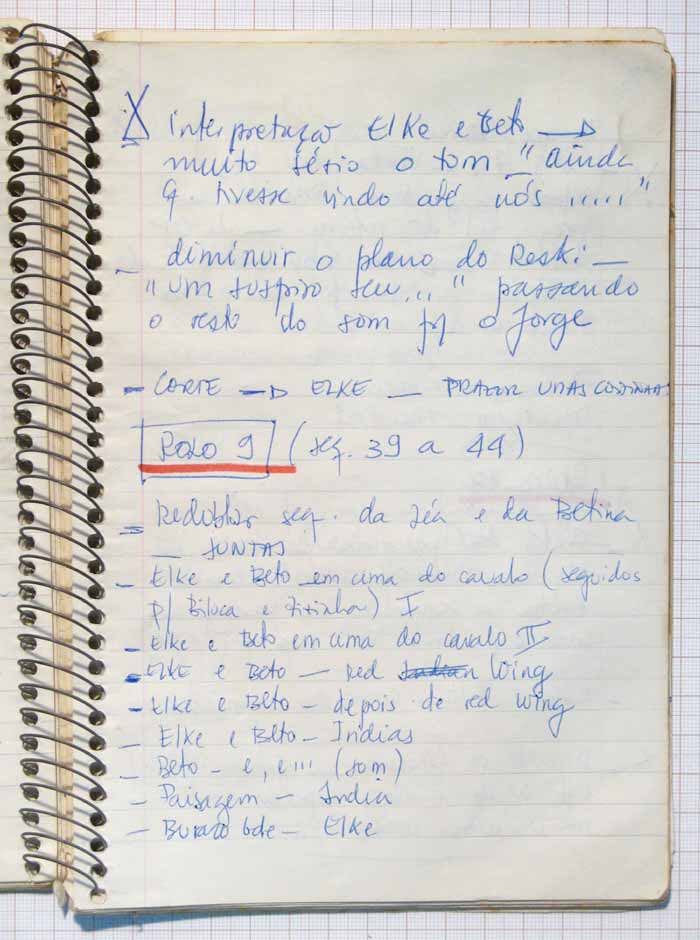 X interpretação Elke e Beto →
muito sério o tom "ainda
q. tivesse vindo até nós ....."
_ diminuir o plano do Reski —
"um suspiro seu..." passando
o resto do som p/ o Jorge
- CORTE → ELKE — PRAZER UMAS COISINHAS
ROLO 9 (seq. 39 a 44)
- Redublar seq. da Zéa e da Betina
— JUNTAS
- Elke e Beto em cima do cavalo (seguidos
p/ Biloca e Zizinha) I
- Elke e Beto em cima do cavalo II
- ELKE e Beto — Red Wing
- Elke e Beto - depois de red wing
- Elke e Beto - Indias
- Beto - e, e... (som)
- Paisagem - India
- Buraco - Elke